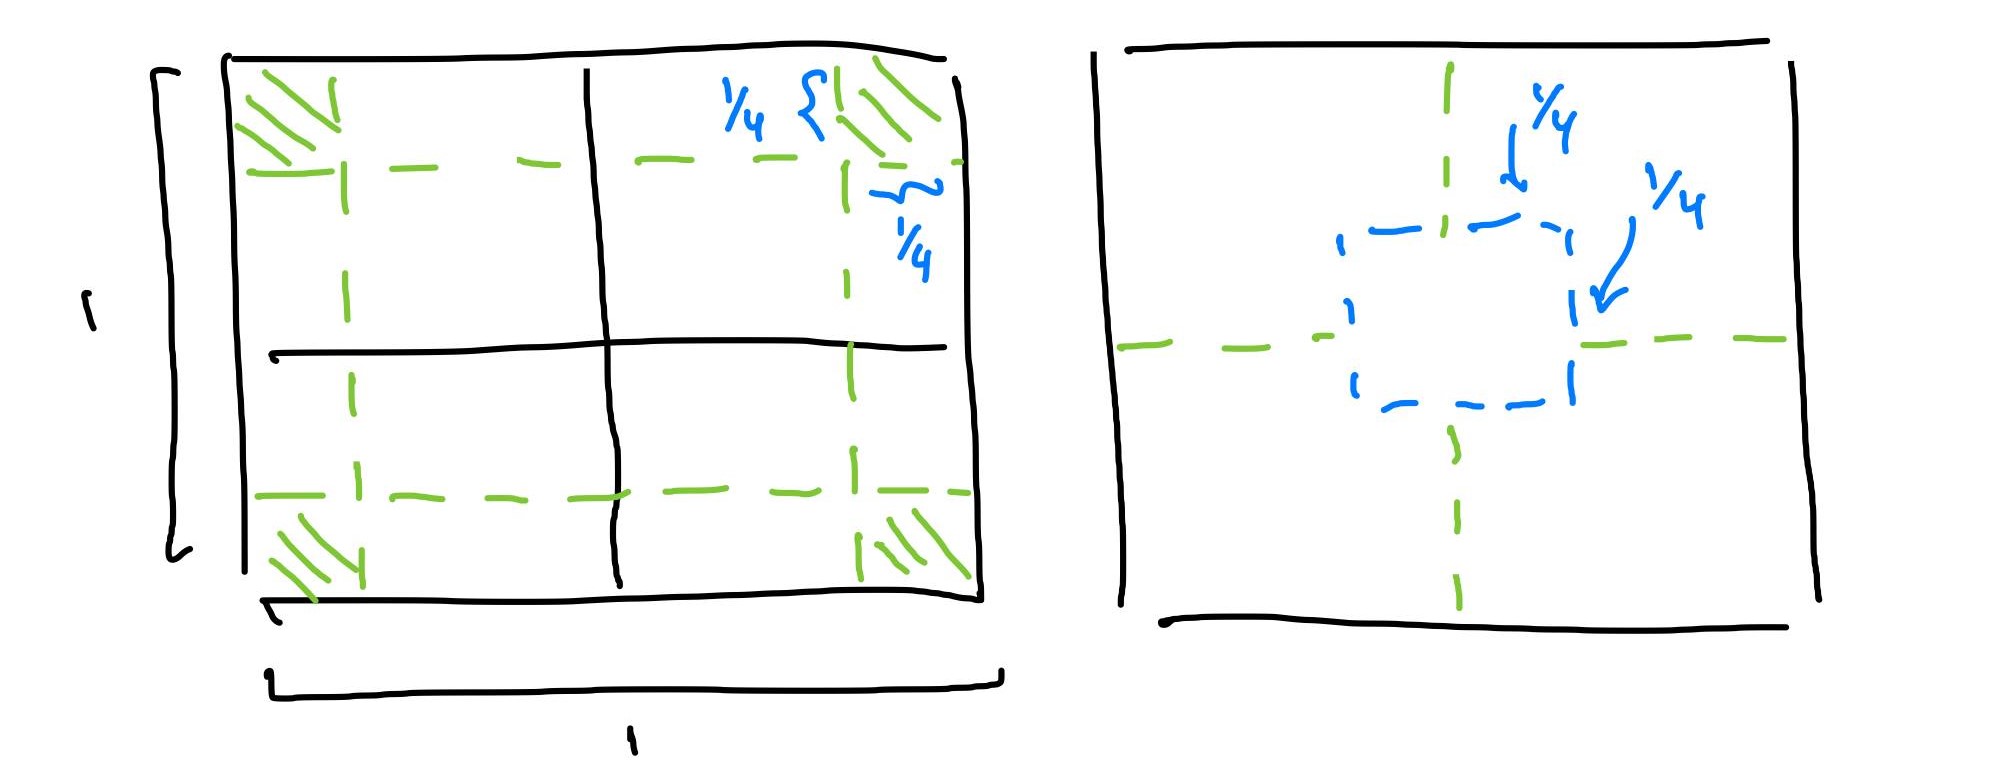 1/4
1/4
1
1
1/4
1/4